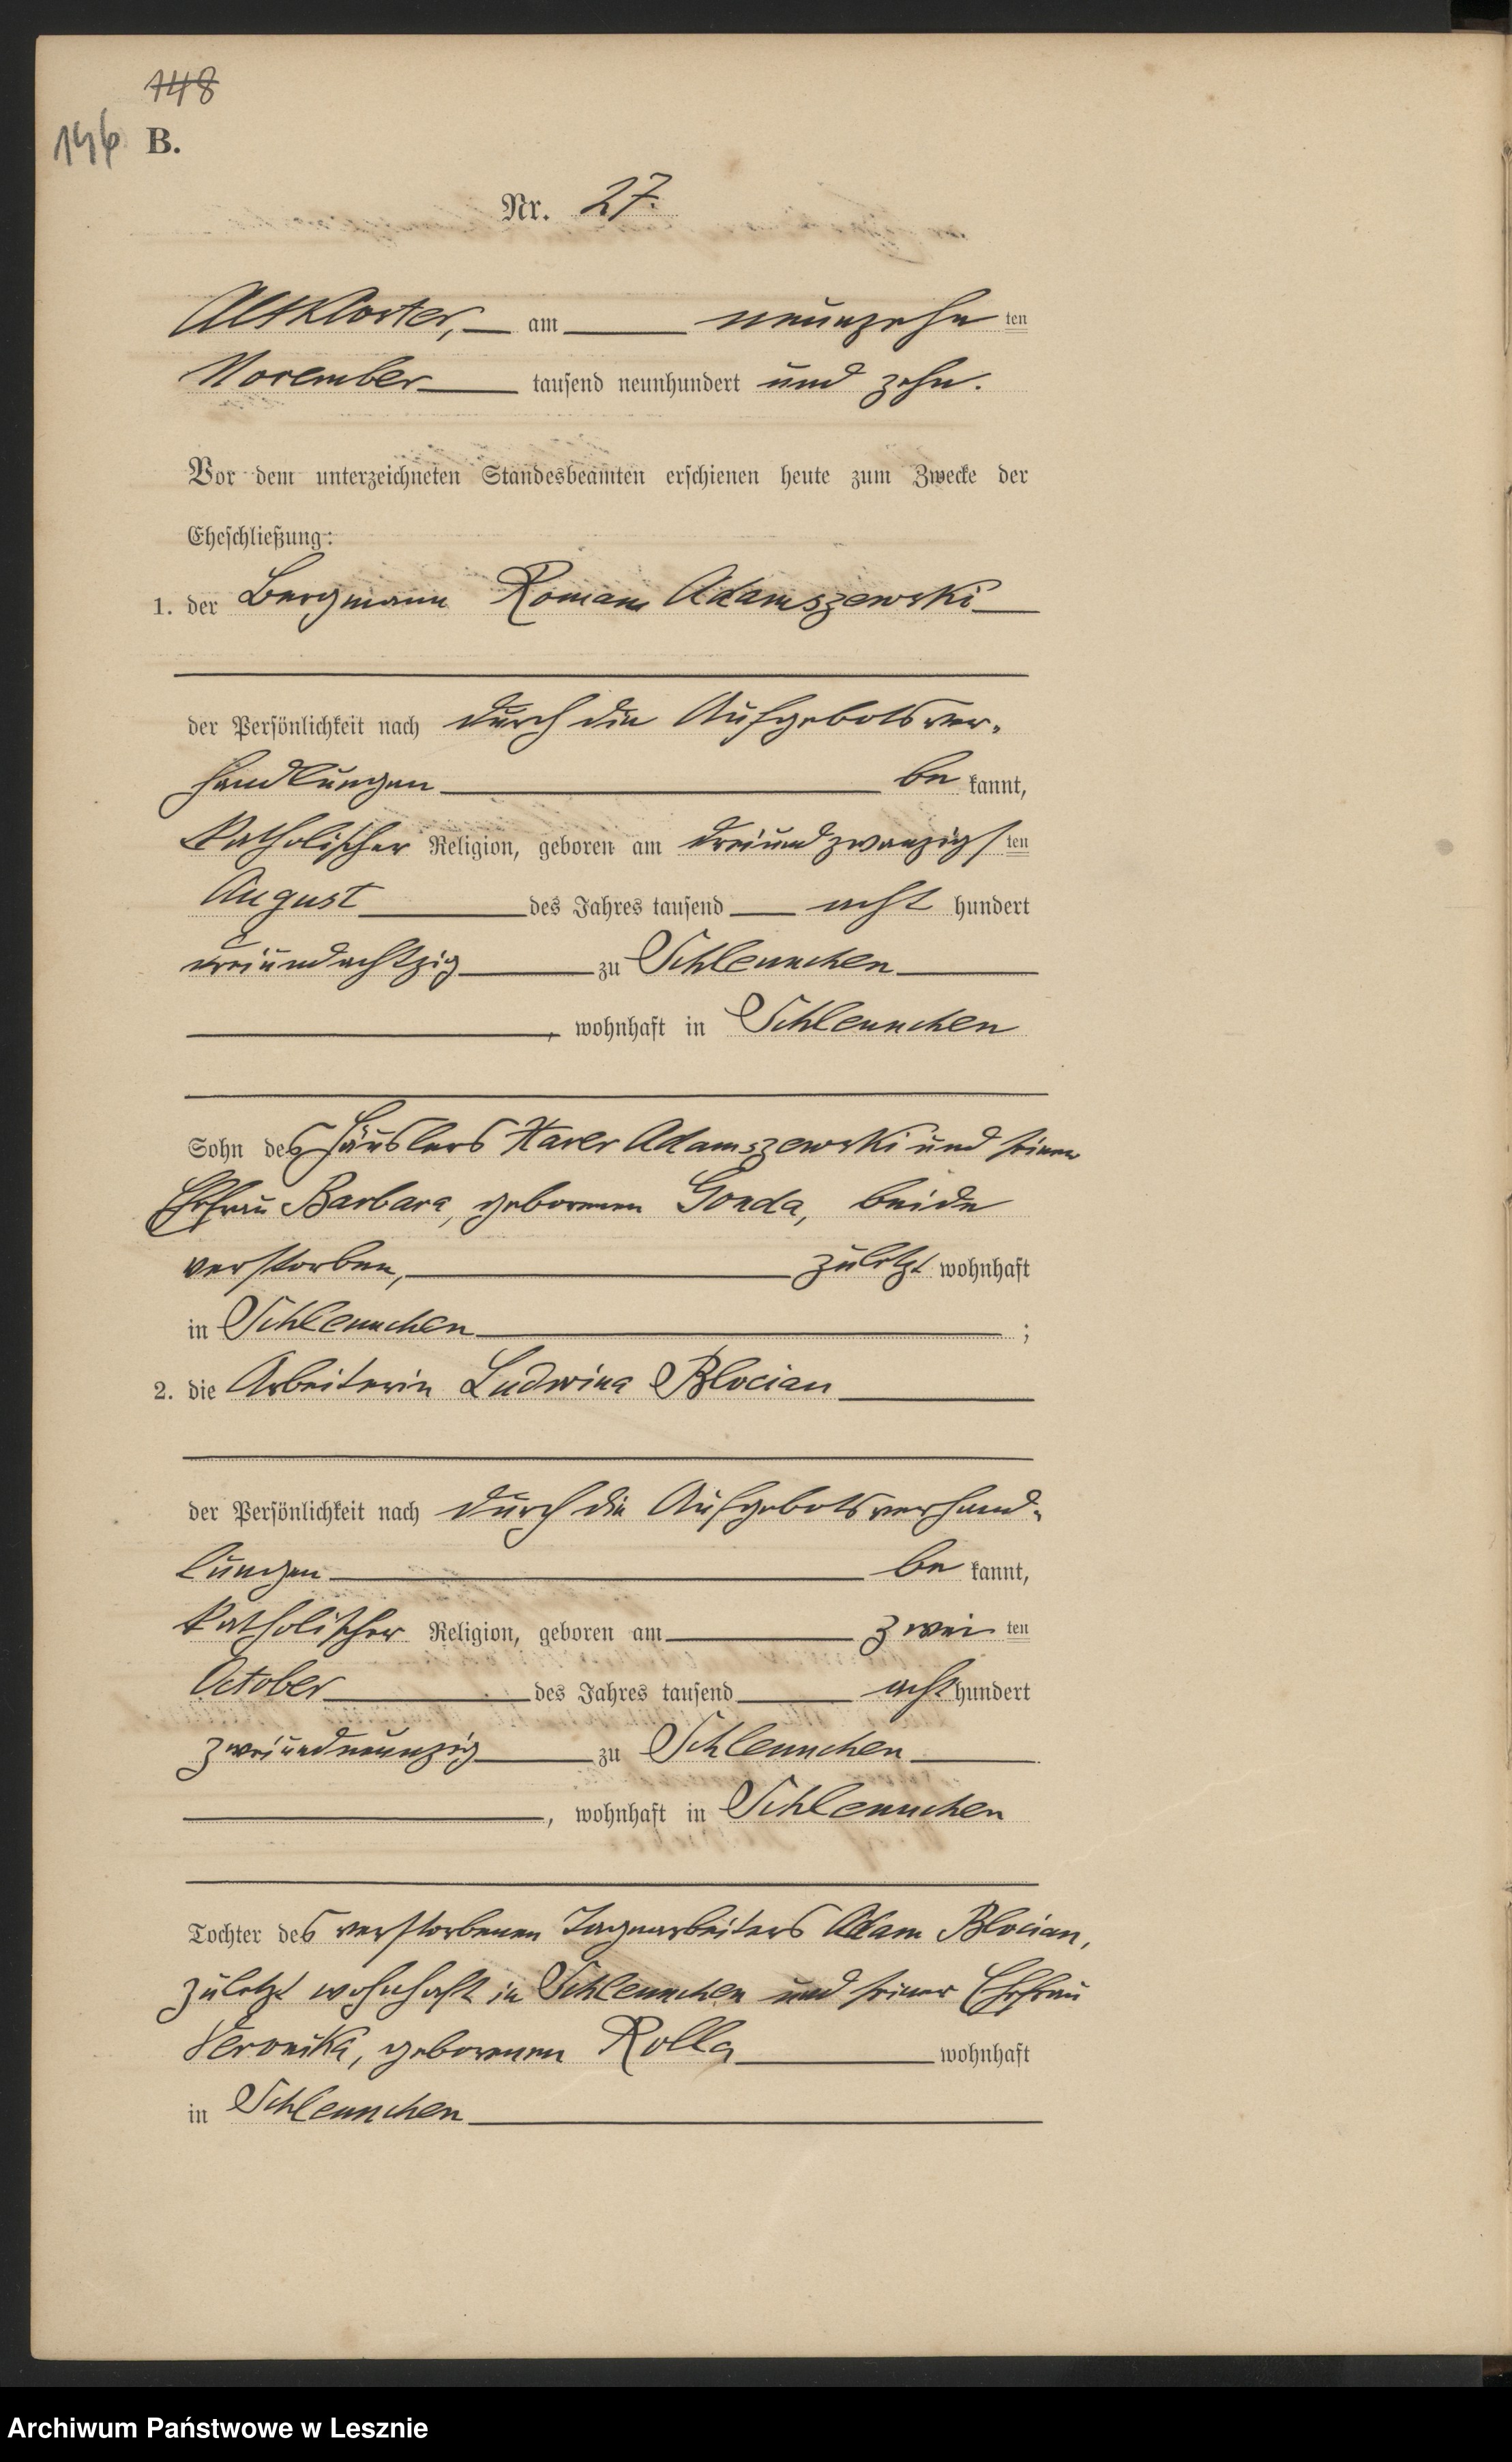 148
146 B.
Nr. 27.
Altkloster, am neunzehn ten
November tausend neunhundert und zehn.
Vor dem unterzeichneten Standesbeamten erschienen heute zum Zwecke der
Eheschließung:
1. der Bergmann Roman Adamszewski
der Persönlichkeit nach durch die Aufgebotsver-
handlungen be kannt,
katholischer Religion, geboren am dreiundzwanzigsten
August des Jahres tausend acht hundert
dreiundachtzig zu Schleunchen
, wohnhaft in Schleunchen
Sohn des Häuslers Xaver Adamszewski und seiner
Ehefrau Barbara, geborenen Gonda, beide
verstorben, zuletzt wohnhaft
in Schleunchen ;
2. die Arbeiterin Ludwina Blocian
der Persönlichkeit nach durch die Aufgebotsverhand-
lungen be kannt,
katholischer Religion, geboren am zwei ten
October des Jahres tausend acht hundert
zweiundneunzig zu Schleunchen
, wohnhaft in Schleunchen
Tochter des verstorbenen Tagearbeiters Adam Blocian,
zuletzt wohnhaft in Schleunchen und seiner Ehefrau
Veronika, geborenen Rolla wohnhaft
in Schleunchen
Archiwum Państwowe w Lesznie